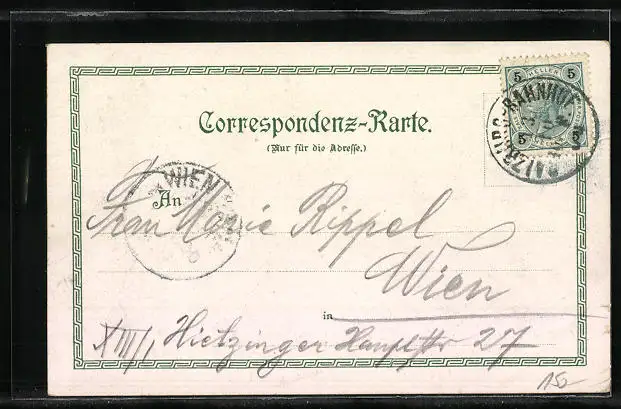 5 HELLER 5
SALZBURG-BAHNHOF
5 5
Correspondenz-Karte.
(Nur für die Adresse.)
WIEN
An
Frau Marie Rippel
Wien
in
XIII/1 Hietzinger Hauptstr 27
152